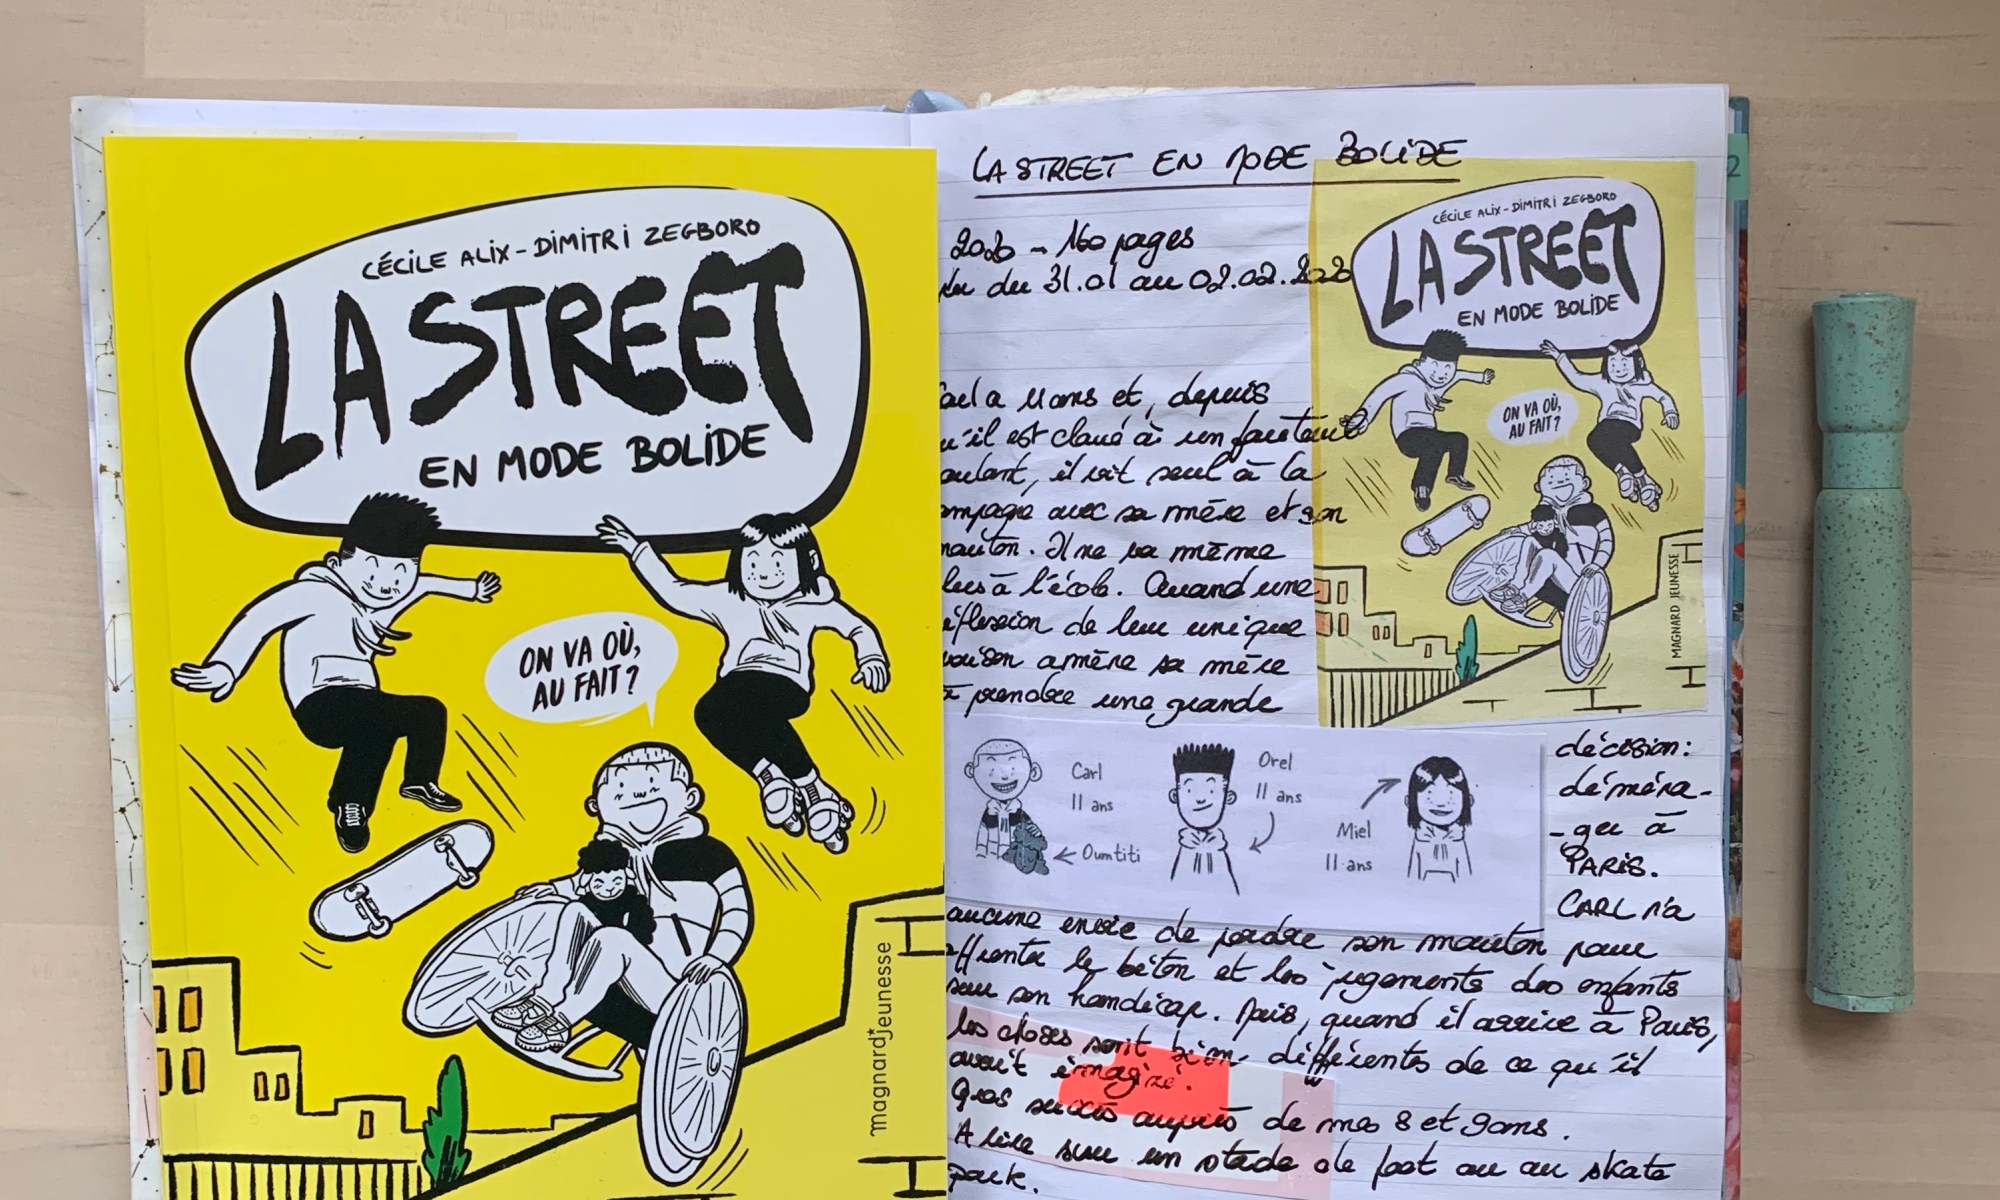 CÉCILE ALIX - DIMITRI ZEGBORO
LA STREET
EN MODE BOLIDE
ON VA OÙ,
AU FAIT ?
magnard jeunesse
LA STREET EN MODE BOLIDE
2020 - 160 pages
lu du 31.01 au 02.02.2020
CÉCILE ALIX - DIMITRI ZEGBORO
LA STREET
EN MODE BOLIDE
ON VA OÙ,
AU FAIT ?
MAGNARD JEUNESSE
Carl a 11 ans et, depuis
u'il est cloué à un fauteuil
oulant, il vit seul à la
ampagne avec sa mère et son
mouton. Il ne va même
lus à l'école. Quand une
éflexion de leur unique
voisin amène sa mère
à prendre une grande
décision:
déména-
-ger à
PARIS.
CARL n'a
Carl
11 ans
Oumtiti
Orel
11 ans
Miel
11 ans
aucune envie de perdre son mouton pour
affronter le béton et les jugements des enfants
sur son handicap. Mais, quand il arrive à Paris,
les choses sont bien différentes de ce qu'il
avait imaginé.
Gros succès auprès de mes 8 et 9 ans.
A lire sur un stade de foot ou au skate
park.